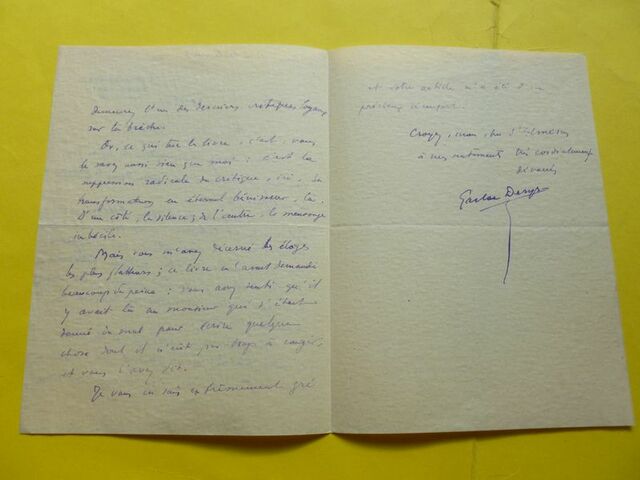 demeurez l'un des derniers critiques loyaux
sur la brèche.
Or, ce qui tue le livre, c'est, vous
le savez aussi bien que moi : c'est la
suppression radicale du critique, ici, sa
transformation en éternel bénisseur, là.
D'un côté, le silence ; de l'autre, le mensonge
imbécile.
Mais vous m'avez décerné les éloges
les plus flatteurs ; ce livre m'avait demandé
beaucoup de peine : vous avez senti qu'il
y avait là un monsieur qui s'était
donné du mal pour écrire quelque
chose dont il n'eût pas trop à rougir,
et vous l'avez dit.
Je vous en sais expressément gré
et votre article m'a été d'un
précieux
Croyez, mon cher
à mes sentiments très cordialement
dévoués
Gaston Derys